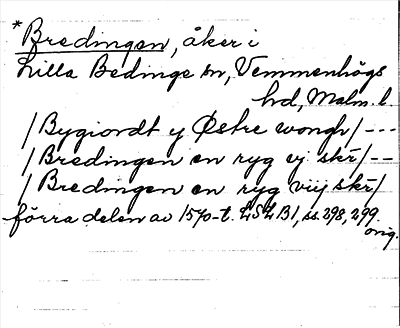 *Bredingen, åker i
Lilla Bedinge sn, Vemmenhögs
hd, Malm. l.
/Bygiordt y Østre wongh/ ---
/Bredingen en ryg vj skr/ --
/Bredingen en ryg viij skr/
förra delen av 1570-t. LSLB1, ss. 298, 299.
orig.